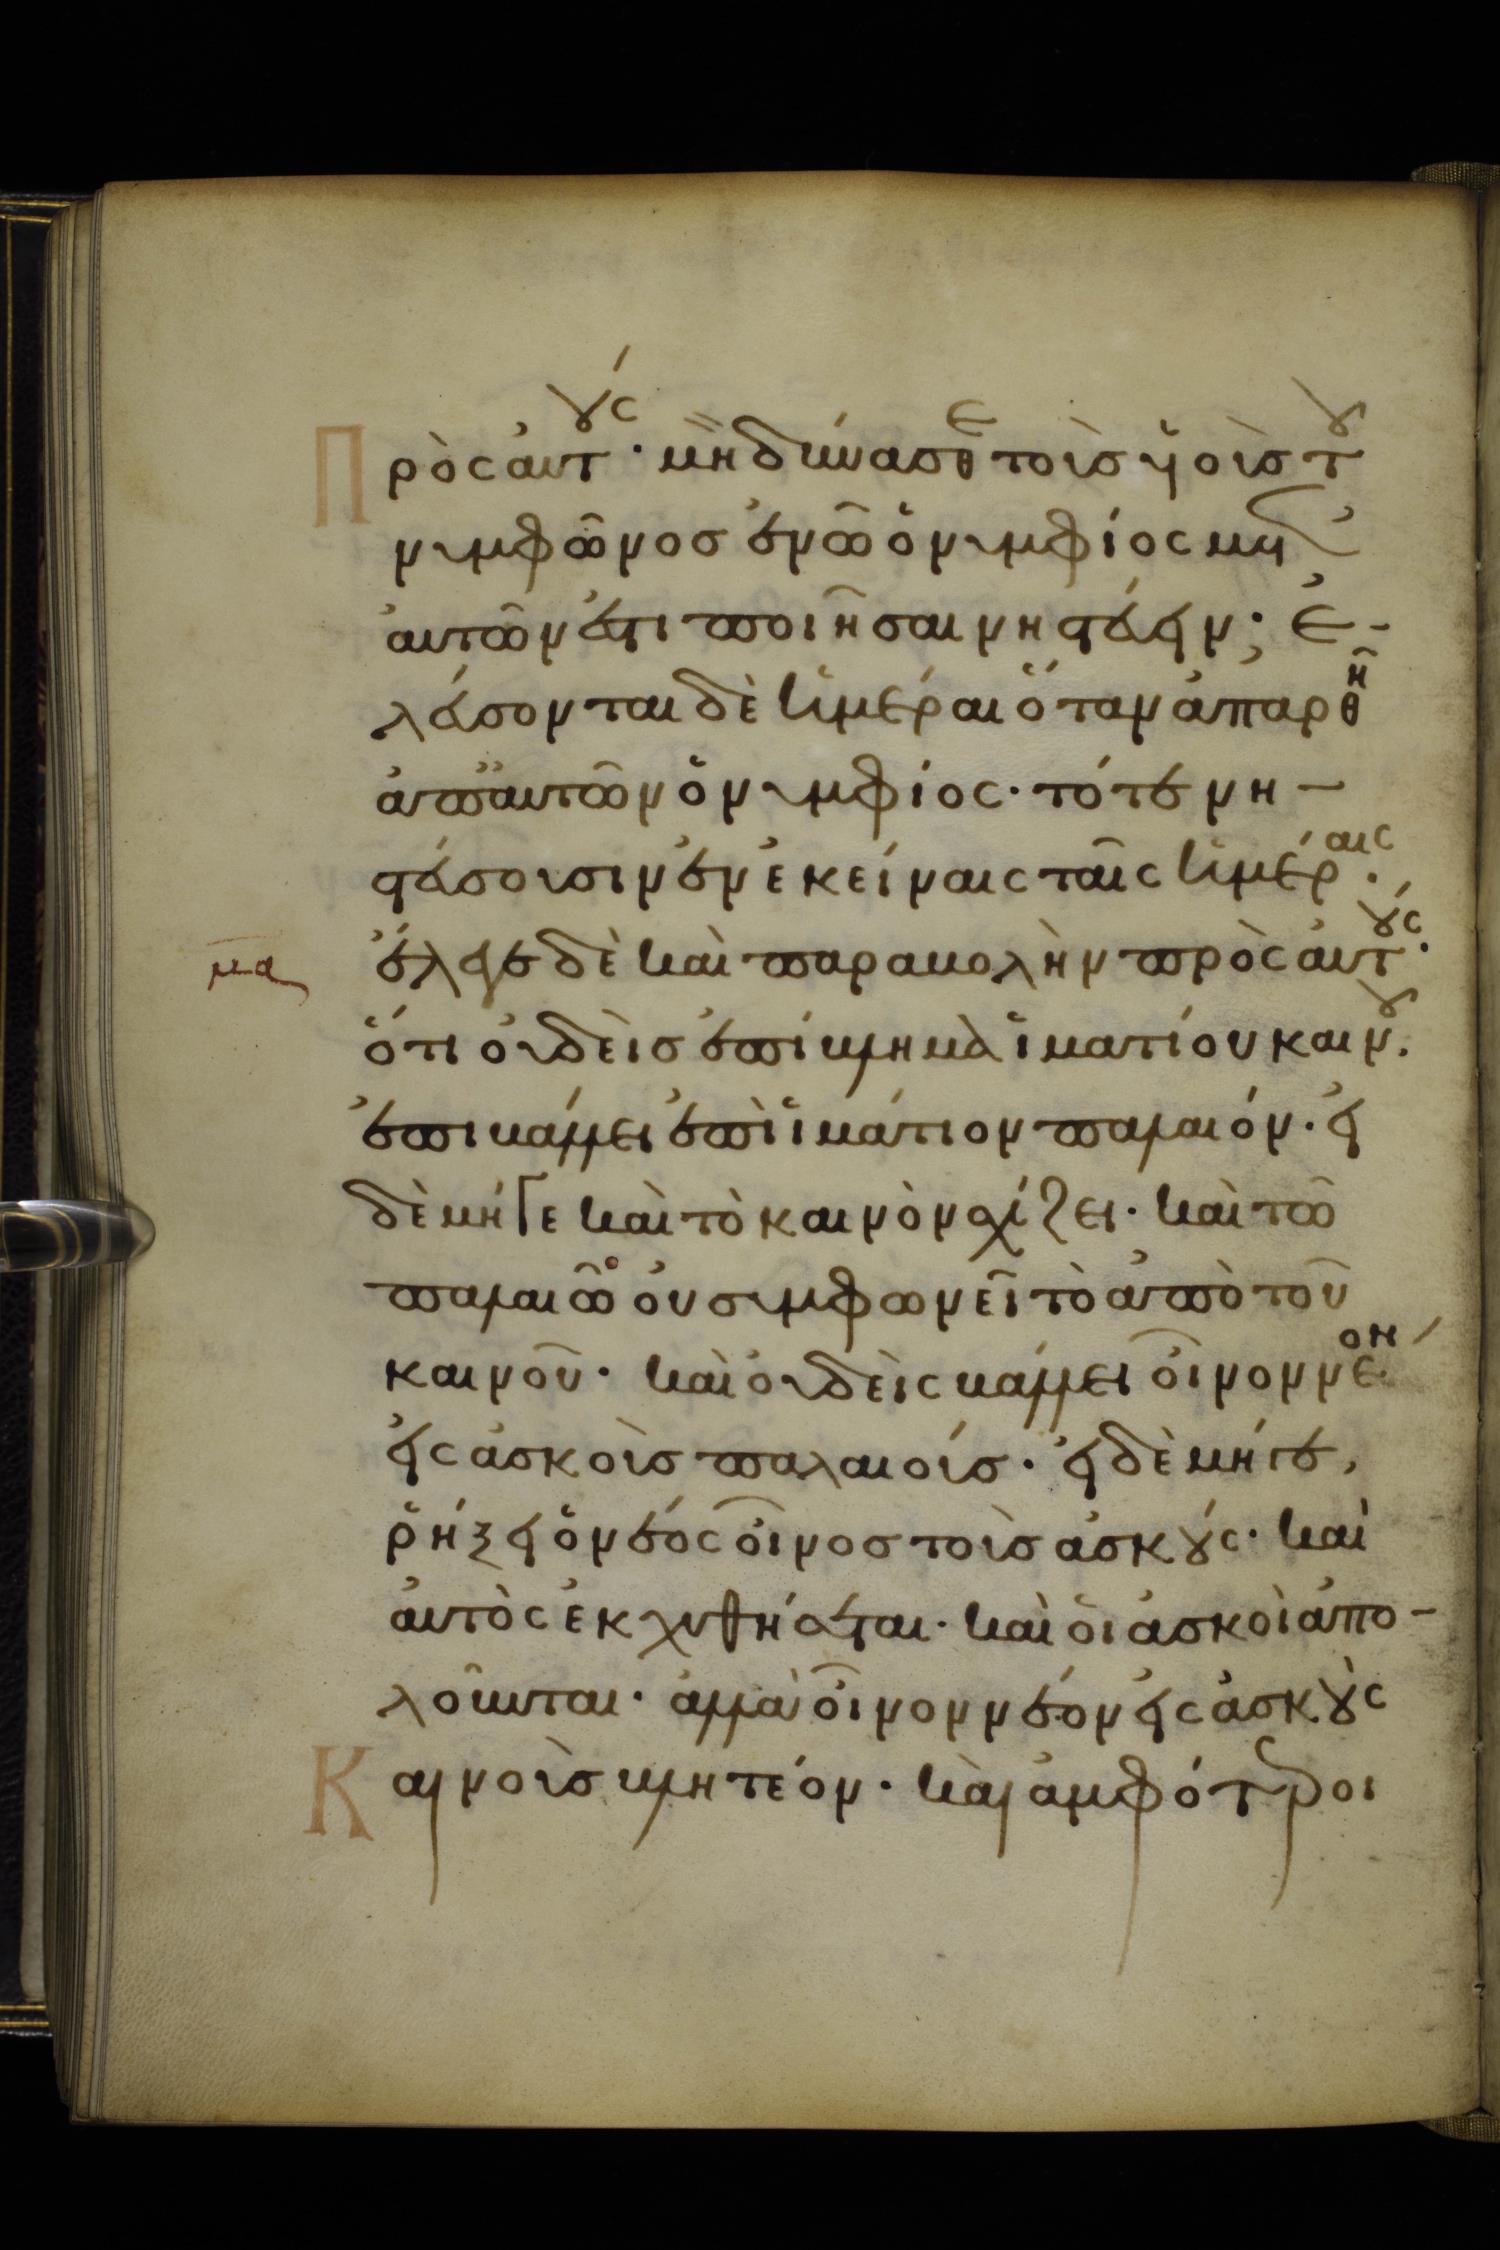 Πρὸς ἀυτούς· μὴ δύνασθε τοὺς ὑιοὺς του
νυμφῶνος ἐν ὧ ὁ νυμφίος μετ
ἀυτῶν ἐστι ποιῆσαι νηστεύειν; ἐ-
λεύσονται δὲ ἡμέραι ὅταν ἀπαρθῆ
ἀπ' ἀυτῶν ὁ νυμφίος· τότε νη-
στεύσουσιν ἐν ἐκείναις ταῖς ἡμέραις.
μα ἔλεγε δὲ καὶ παραβολὴν πρὸς ἀυτούς·
ὅτι ὀυδεὶς ἐπίβλημα ἱματίου καινου
ἐπιβάλλει ἐπὶ ἱμάτιον παλαιόν· εἰ
δὲ μήγε καὶ τὸ καινὸν σχίζει· καὶ τῶ
παλαιῶ ὀυ συμφωνεῖ τὸ ἀπὸ τοῦ
καινοῦ· καὶ ὀυδεὶς βάλλει οἶνον νέον
εἰς ἀσκοὺς παλαιούς· εἰ δὲ μήγε,
ῥήξει ὁ νέος οἶνος τοὺς ἀσκούς· καὶ
ἀυτὸς ἐκχυθήσεται· καὶ ὁι ἀσκοὶ ἀπο-
λοῦνται· ἀλλὰ οἶνον νέον εἰς ἀσκοὺς
Καινοὺς βλητέον· καὶ ἀμφότεροι